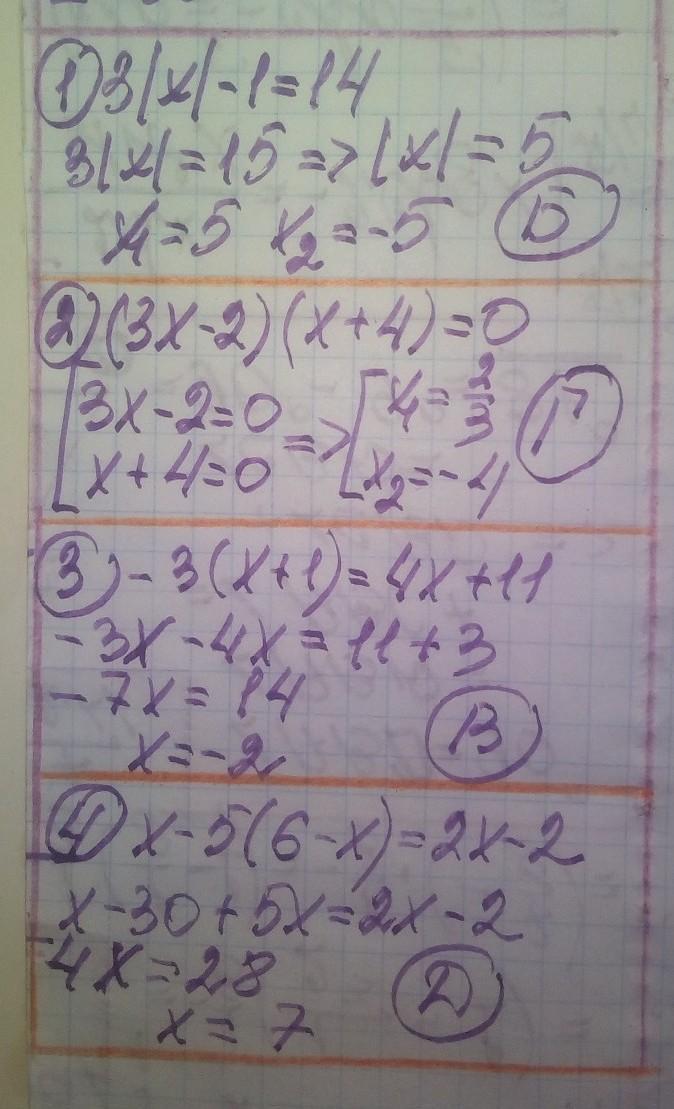 ① 3|x| - 1 = 14
3|x| = 15 => |x| = 5
x₁ = 5 x₂ = -5 Б
② (3x - 2)(x + 4) = 0
[3x - 2 = 0 => [x₁ = 2/3 Г
x + 4 = 0 x₂ = -4
③ - 3(x + 1) = 4x + 11
- 3x - 4x = 11 + 3
- 7x = 14
x = -2 В
④ x - 5(6 - x) = 2x - 2
x - 30 + 5x = 2x - 2
4x = 28
x = 7 Д